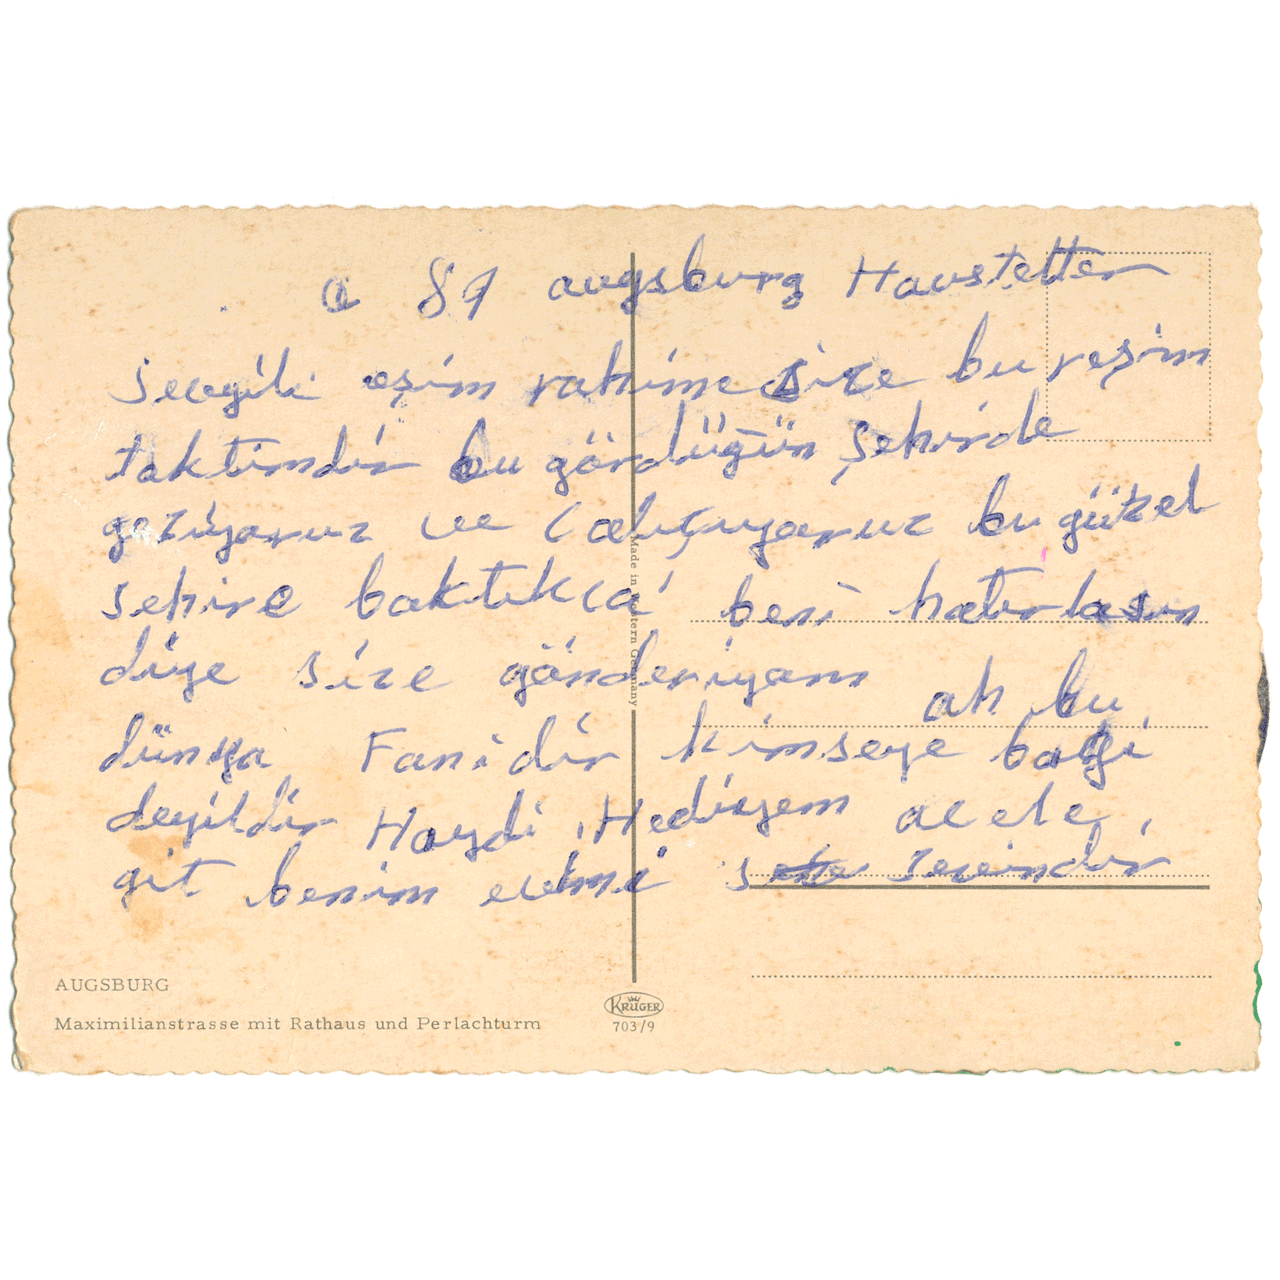 89 augsburg Haustetter
Sevgili eşim rahime size bu reşim
taktimdir bu gördüğün şehirde
geziyoruz ve Calışıyoruz bu güzel
sehire baktıkca beni hatırlasın
diye size gönderiyom ah bu
dünya Fanidir kimseye bağı
deyildir Haydi Hediyem acele
git benim evimi sezeindir
Made in Western Germany
AUGSBURG
Maximilianstrasse mit Rathaus und Perlachturm
KRÜGER
703/9